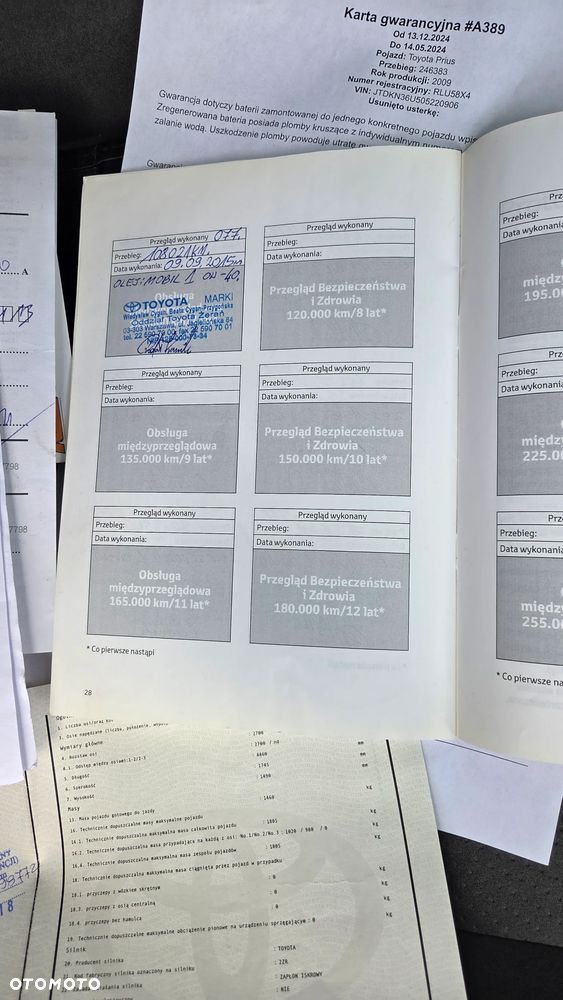 Karta gwarancyjna #A389
Od 13.12.2024
Do 14.05.2024
Pojazd: Toyota Prius
Przebieg: 246383
Rok produkcji: 2009
Numer rejestracyjny: RLU58X4
VIN: JTDKN36U505220906
Usunięto usterkę:
Gwarancja dotyczy baterii zamontowanej do jednego konkretnego pojazdu
Zregenerowana bateria posiada plomby kruszące z indywidualnym
zalanie wodą. Uszkodzenie plomby powoduje utratę
Przegląd wykonany 077.
Przebieg: 108021KM.
Data wykonania: 09.09.2015r.
OLEJ: MOBIL 1 0W-40.
Obsługa
TOYOTA MARKI
Władysław Cygan, Beata Cygan-Przygońska
Oddział Toyota Żerań
03-303 Warszawa, ul. Jagiellońska 84
Przegląd wykonany
Przebieg:
Data wykonania:
Przegląd Bezpieczeństwa
i Zdrowia
120.000 km/8 lat*
Przegląd wykonany
Przebieg:
Data wykonania:
Obsługa
międzyprzeglądowa
135.000 km/9 lat*
Przegląd wykonany
Przebieg:
Data wykonania:
Przegląd Bezpieczeństwa
i Zdrowia
150.000 km/10 lat*
Przegląd wykonany
Przebieg:
Data wykonania:
Obsługa
międzyprzeglądowa
165.000 km/11 lat*
Przegląd wykonany
Przebieg:
Data wykonania:
Przegląd Bezpieczeństwa
i Zdrowia
180.000 km/12 lat*
* Co pierwsze nastąpi
28
Przebieg:
Data wykonania:
195.00
Przebieg:
Data wykonania:
225.00
Przebieg:
Data wykonania:
255.00
* Co pierwsze
Wymiary główne
4. Rozstaw osi : 2700 / nd mm
5. Długość : 4460 mm
6. Szerokość : 1745 mm
7. Wysokość : 1490
Masy
13. Masa pojazdu gotowego do jazdy : 1460 kg
14. Technicznie dopuszczalne masy maksymalne pojazdu
14.1. Technicznie dopuszczalna maksymalna masa całkowita pojazdu : 1805 kg
14.2. Technicznie dopuszczalna masa przypadająca na każdą z osi: No.1/No.2/No.3 : 1020 / 980 / 0 kg
16.4. Technicznie dopuszczalna maksymalna masa zespołu pojazdów : 1805 kg
18. Technicznie dopuszczalna maksymalna masa ciągnięta przez pojazd w przypadku
18.1. przyczepy z wózkiem skrętnym : 0 kg
18.3. przyczepy z osią centralną : 0 kg
18.4. przyczepy bez hamulca : 0 kg
19. Technicznie dopuszczalne maksymalne obciążenie pionowe na urządzeniu sprzęgającym : 0 kg
Silnik
20. Producent silnika : TOYOTA
21. Kod fabryczny silnika oznaczony na silniku : 2ZR
: ZAPŁON ISKROWY
: NIE
OTOMOTO